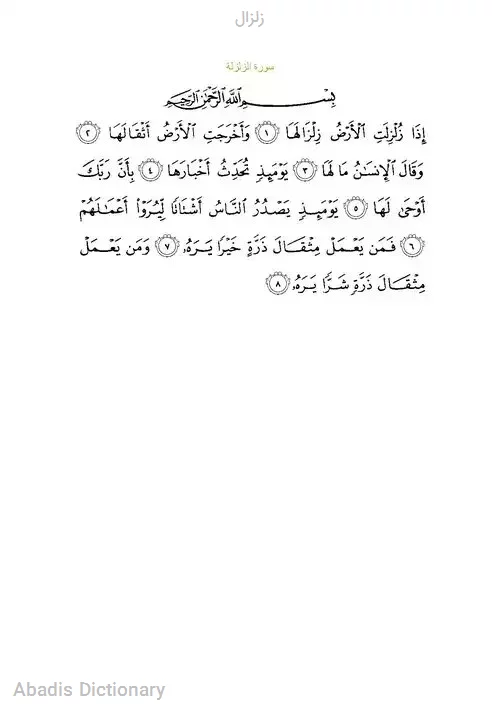 زلزال
سورة الزلزلة
بِسْمِ ٱللَّهِ ٱلرَّحْمَٰنِ ٱلرَّحِيمِ
إِذَا زُلْزِلَتِ ٱلْأَرْضُ زِلْزَالَهَا ١ وَأَخْرَجَتِ ٱلْأَرْضُ أَثْقَالَهَا ٢
وَقَالَ ٱلْإِنسَٰنُ مَا لَهَا ٣ يَوْمَئِذٍ تُحَدِّثُ أَخْبَارَهَا ٤ بِأَنَّ رَبَّكَ
أَوْحَىٰ لَهَا ٥ يَوْمَئِذٍ يَصْدُرُ ٱلنَّاسُ أَشْتَاتًا لِّيُرَوْا۟ أَعْمَٰلَهُمْ
٦ فَمَن يَعْمَلْ مِثْقَالَ ذَرَّةٍ خَيْرًا يَرَهُۥ ٧ وَمَن يَعْمَلْ
مِثْقَالَ ذَرَّةٍ شَرًّا يَرَهُۥ ٨
Abadis Dictionary